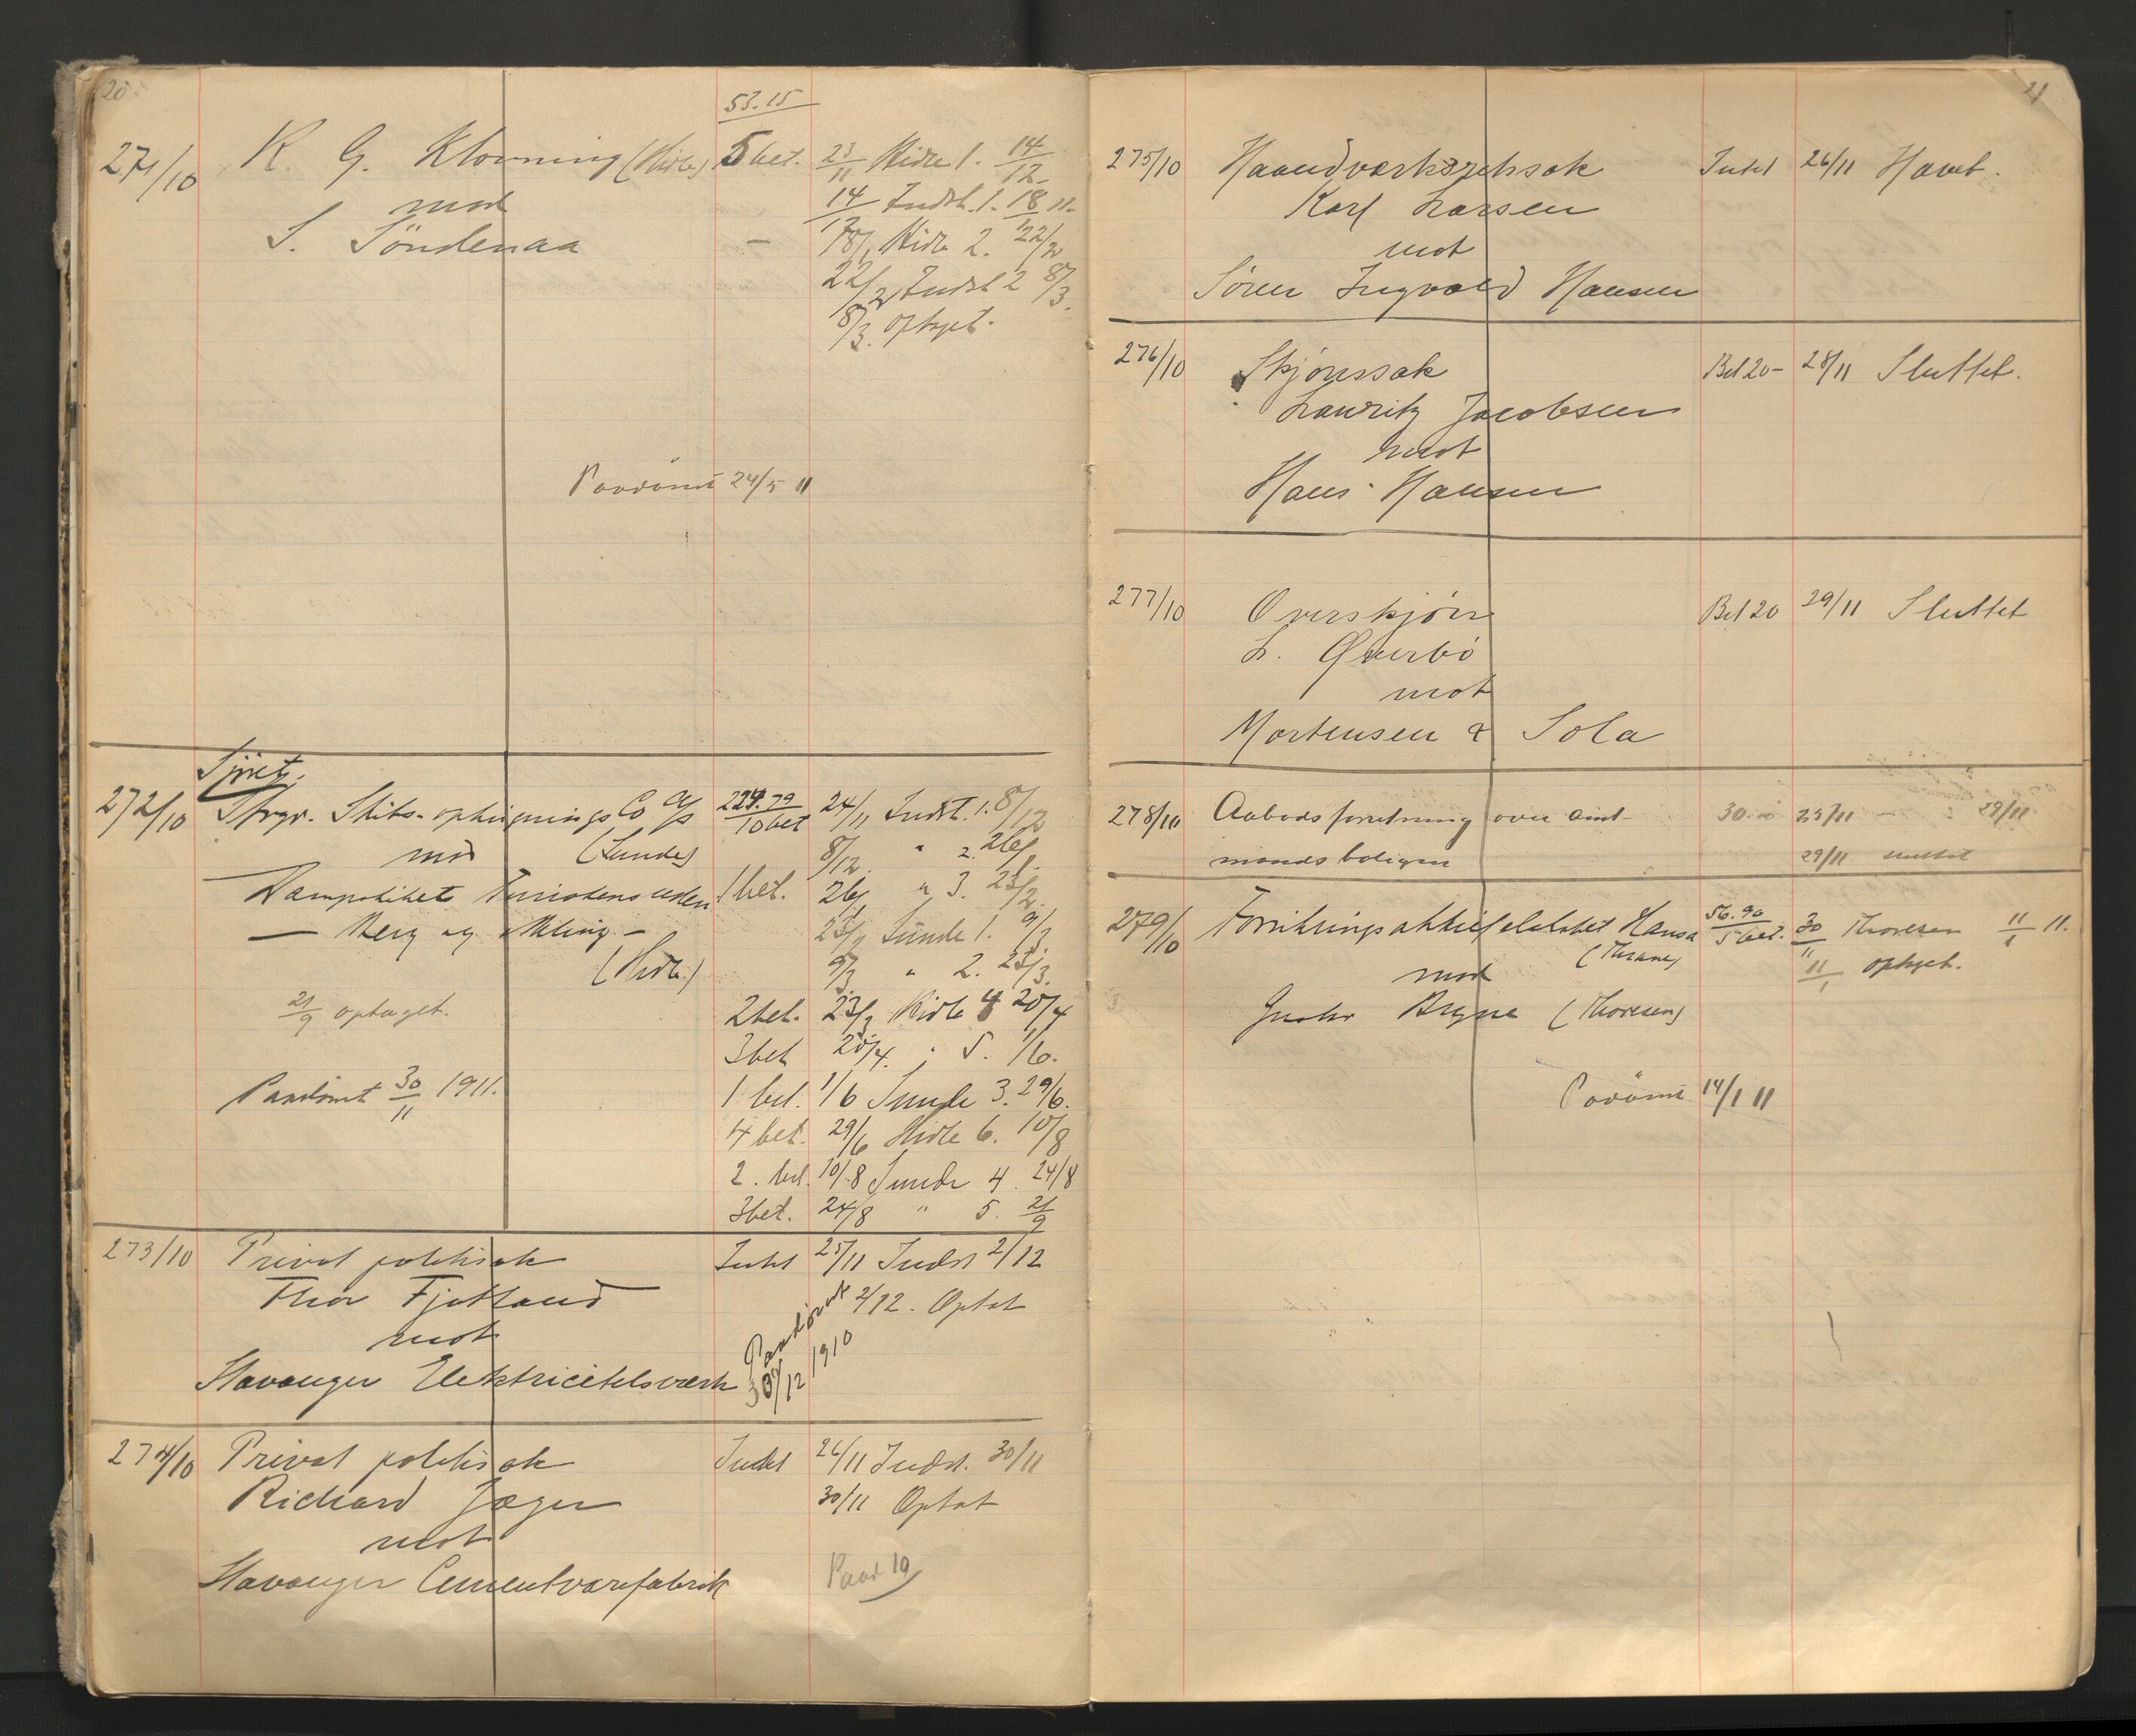 20
53.15
271/10 K. G. Klovning (Hidle) 5 bet. 23/11 Hidle 1. 14/12
mod 14/12 Indst. 1. 18/1 11.
S. Söndenaa — 18/1 Hidle 2. 22/2
22/2 Indst 2 8/3.
8/3. optaget.
Paadömt 24/5 11
Sjöret.
272/10 Stvgr. Skibs-ophugnings Co A/S 224.79 10 bet 24/11 Indst. 1. 8/12
mod (Sunde) 8/12. " 2. 26/1.
Dampskibet Turistens rederi 1 bet. 26/1 " 3. 23/2.
— Berg og Kling — 23/2 Sunde 1. 9/3
(Hidle) 9/3. " 2. 23/3.
21/9 optaget. 2 bet. 23/3 Hidle 4 20/4
3 bet 20/4. " 5. 1/6.
Paadömt 30/11 1911. 1 bet. 1/6 Sunde 3. 29/6.
4 bet. 29/6 Hidle 6. 10/8
2. bet. 10/8 Sunde 4. 24/8
3 bet. 24/8 " 5. 21/9
273/10 Privat politisak Inkl 25/11 Indst 2/12
Thor Fjotland 2/12. Optat
mot Paadömt
Stavanger Elektricitetsverk 30/12 1910
274/10 Privat politisak Inkl 26/11 Indst. 30/11
Richard Jæger 30/11 Optat
mot
Stavanger Cementvarefabrik Paad 10
21
275/10 Haandverksretssak Inkl 26/11 Hævet.
Karl Larsen
mot
Sören Ingvald Hansen
276/10 Skjönssak Bet 20- 28/11 Sluttet.
Lauritz Jacobsen
mot
Hans Hansen
277/10 Overskjön Bet 20 29/11 Sluttet
L. Øverbö
mot
Mortensen & Sola
278/10 Aabodsforretning over amt- 30.00 25/11 — : 29/11
mandsboligen 29/11 sluttet
279/10 Forsikringsaktieselskabet Hansa 56.90 5 bet. 30/11 Thoresen 11/1 11.
(Thrane) 11/1 optaget.
mod
Gustav Bryne (Thoresen)
Paadömt 14/1 11